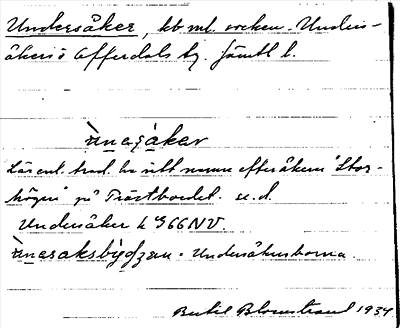 Undersåker, kb ml. socken. Unders-
åkers o Offerdals tg. Jämtl l.
Lär enl. trad. ha sitt namn efter åkern "Stor-
högen" på Trästbordet. se.d.
Undersåker h 366 NV
Undersåkersborna
Bertil Blomstrand 1934